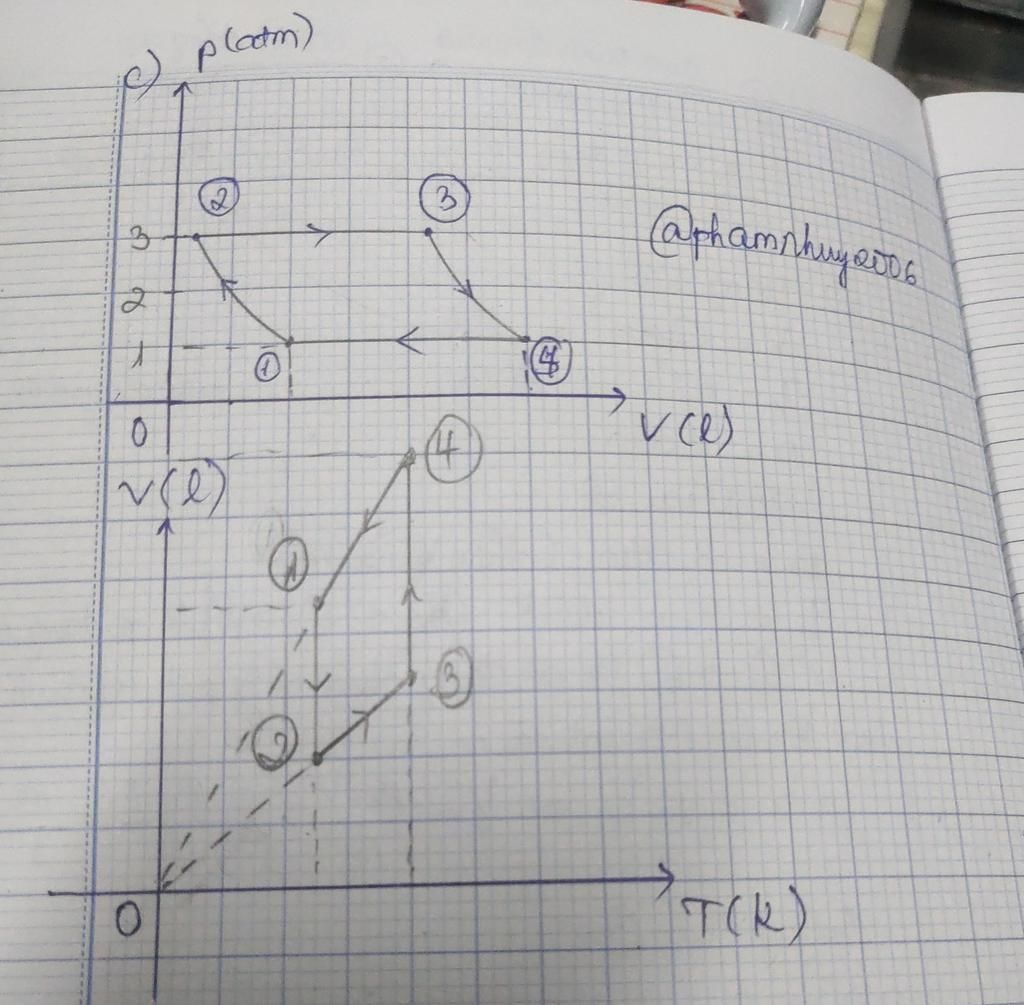 c) p(atm)
② ③
3
@phamnhuy2006
2
1
① ④
0
V(l)
V(l)
④
①
③
②
0
T(K)